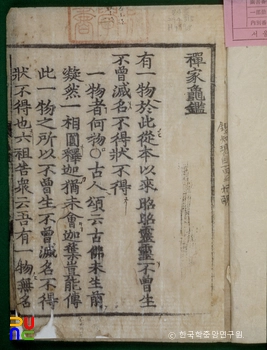 禪家龜鑑
有一物於此從本以來昭昭靈靈不曾生
不曾滅名不得狀不得
一物者何物○古人頌云古佛未生前
凝然一相圓釋迦猶未會迦葉豈能傳
此一物之所以不曾生不曾滅名不得
狀不得也六祖告衆云吾有一物無名
한국학중앙연구원